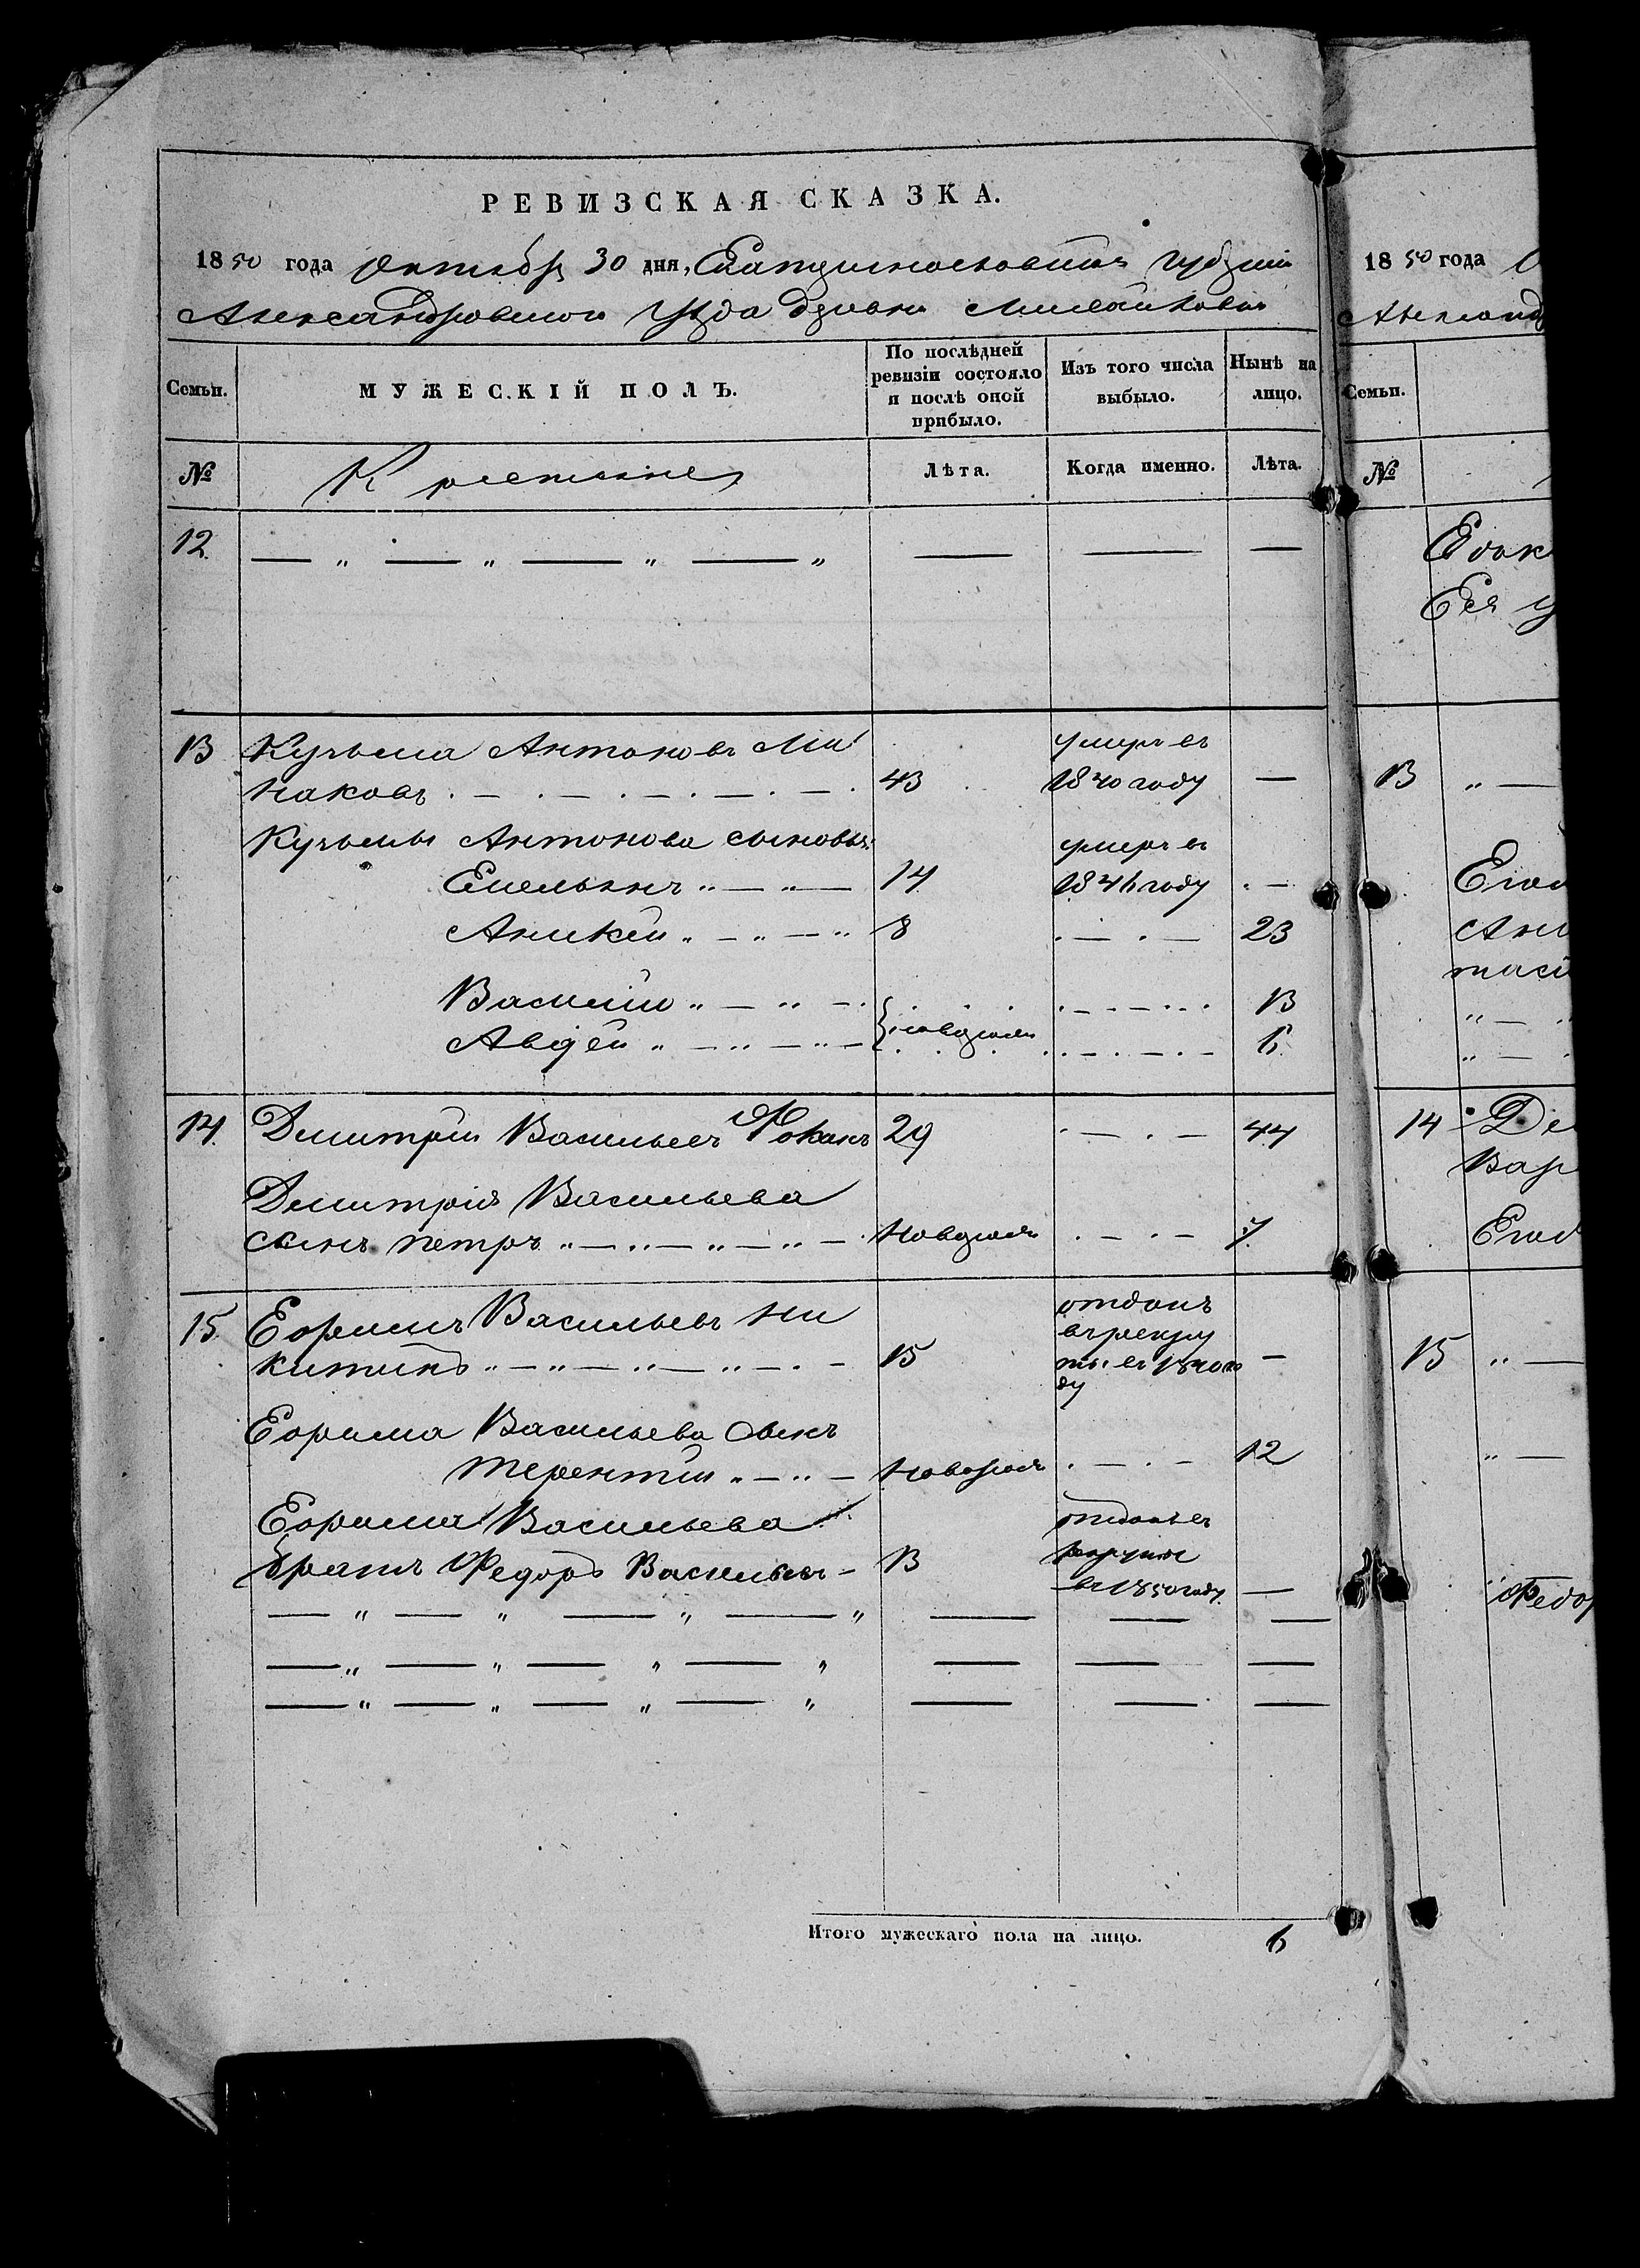 РЕВИЗСКАЯ СКАЗКА.
1850 года октября 30 дня, Екатеринославской губерніи
Александровского уезда деревни
Семьи.
МУЖЕСКІЙ ПОЛЪ.
По послѣдней ревизіи состояло и послѣ оной прибыло.
Изъ того числа выбыло.
Нынѣ на лицо.
№
Крестьяне
Лѣта.
Когда именно.
Лѣта.
12.
13 Кузьма Антоновъ Ми
наковъ 43 умеръ въ 1840 году —
Кузьмы Антонова сыновья:
Емельянъ 14 умеръ въ 1846 году —
Аникей 8 23
Василій 13
Авдей новорожден 6
14. Дмитрій Васильевъ Фокинъ 29 44
Дмитрія Васильева
сынъ петръ новорожд 7
15. Ефимъ Васильевъ Ни
китинъ 15 отданъ въ рекру
ты въ 1840 го
ду —
Ефима Васильева сынъ
терентій новорожд 12
Ефима Васильева
братъ Федоръ Васильевъ 13 отданъ въ
рекруты
въ 1850 году —
Итого мужескаго пола на лицо. 6
1850 года
Семьи.
№
Ея
13
14
Вар
15
Федо